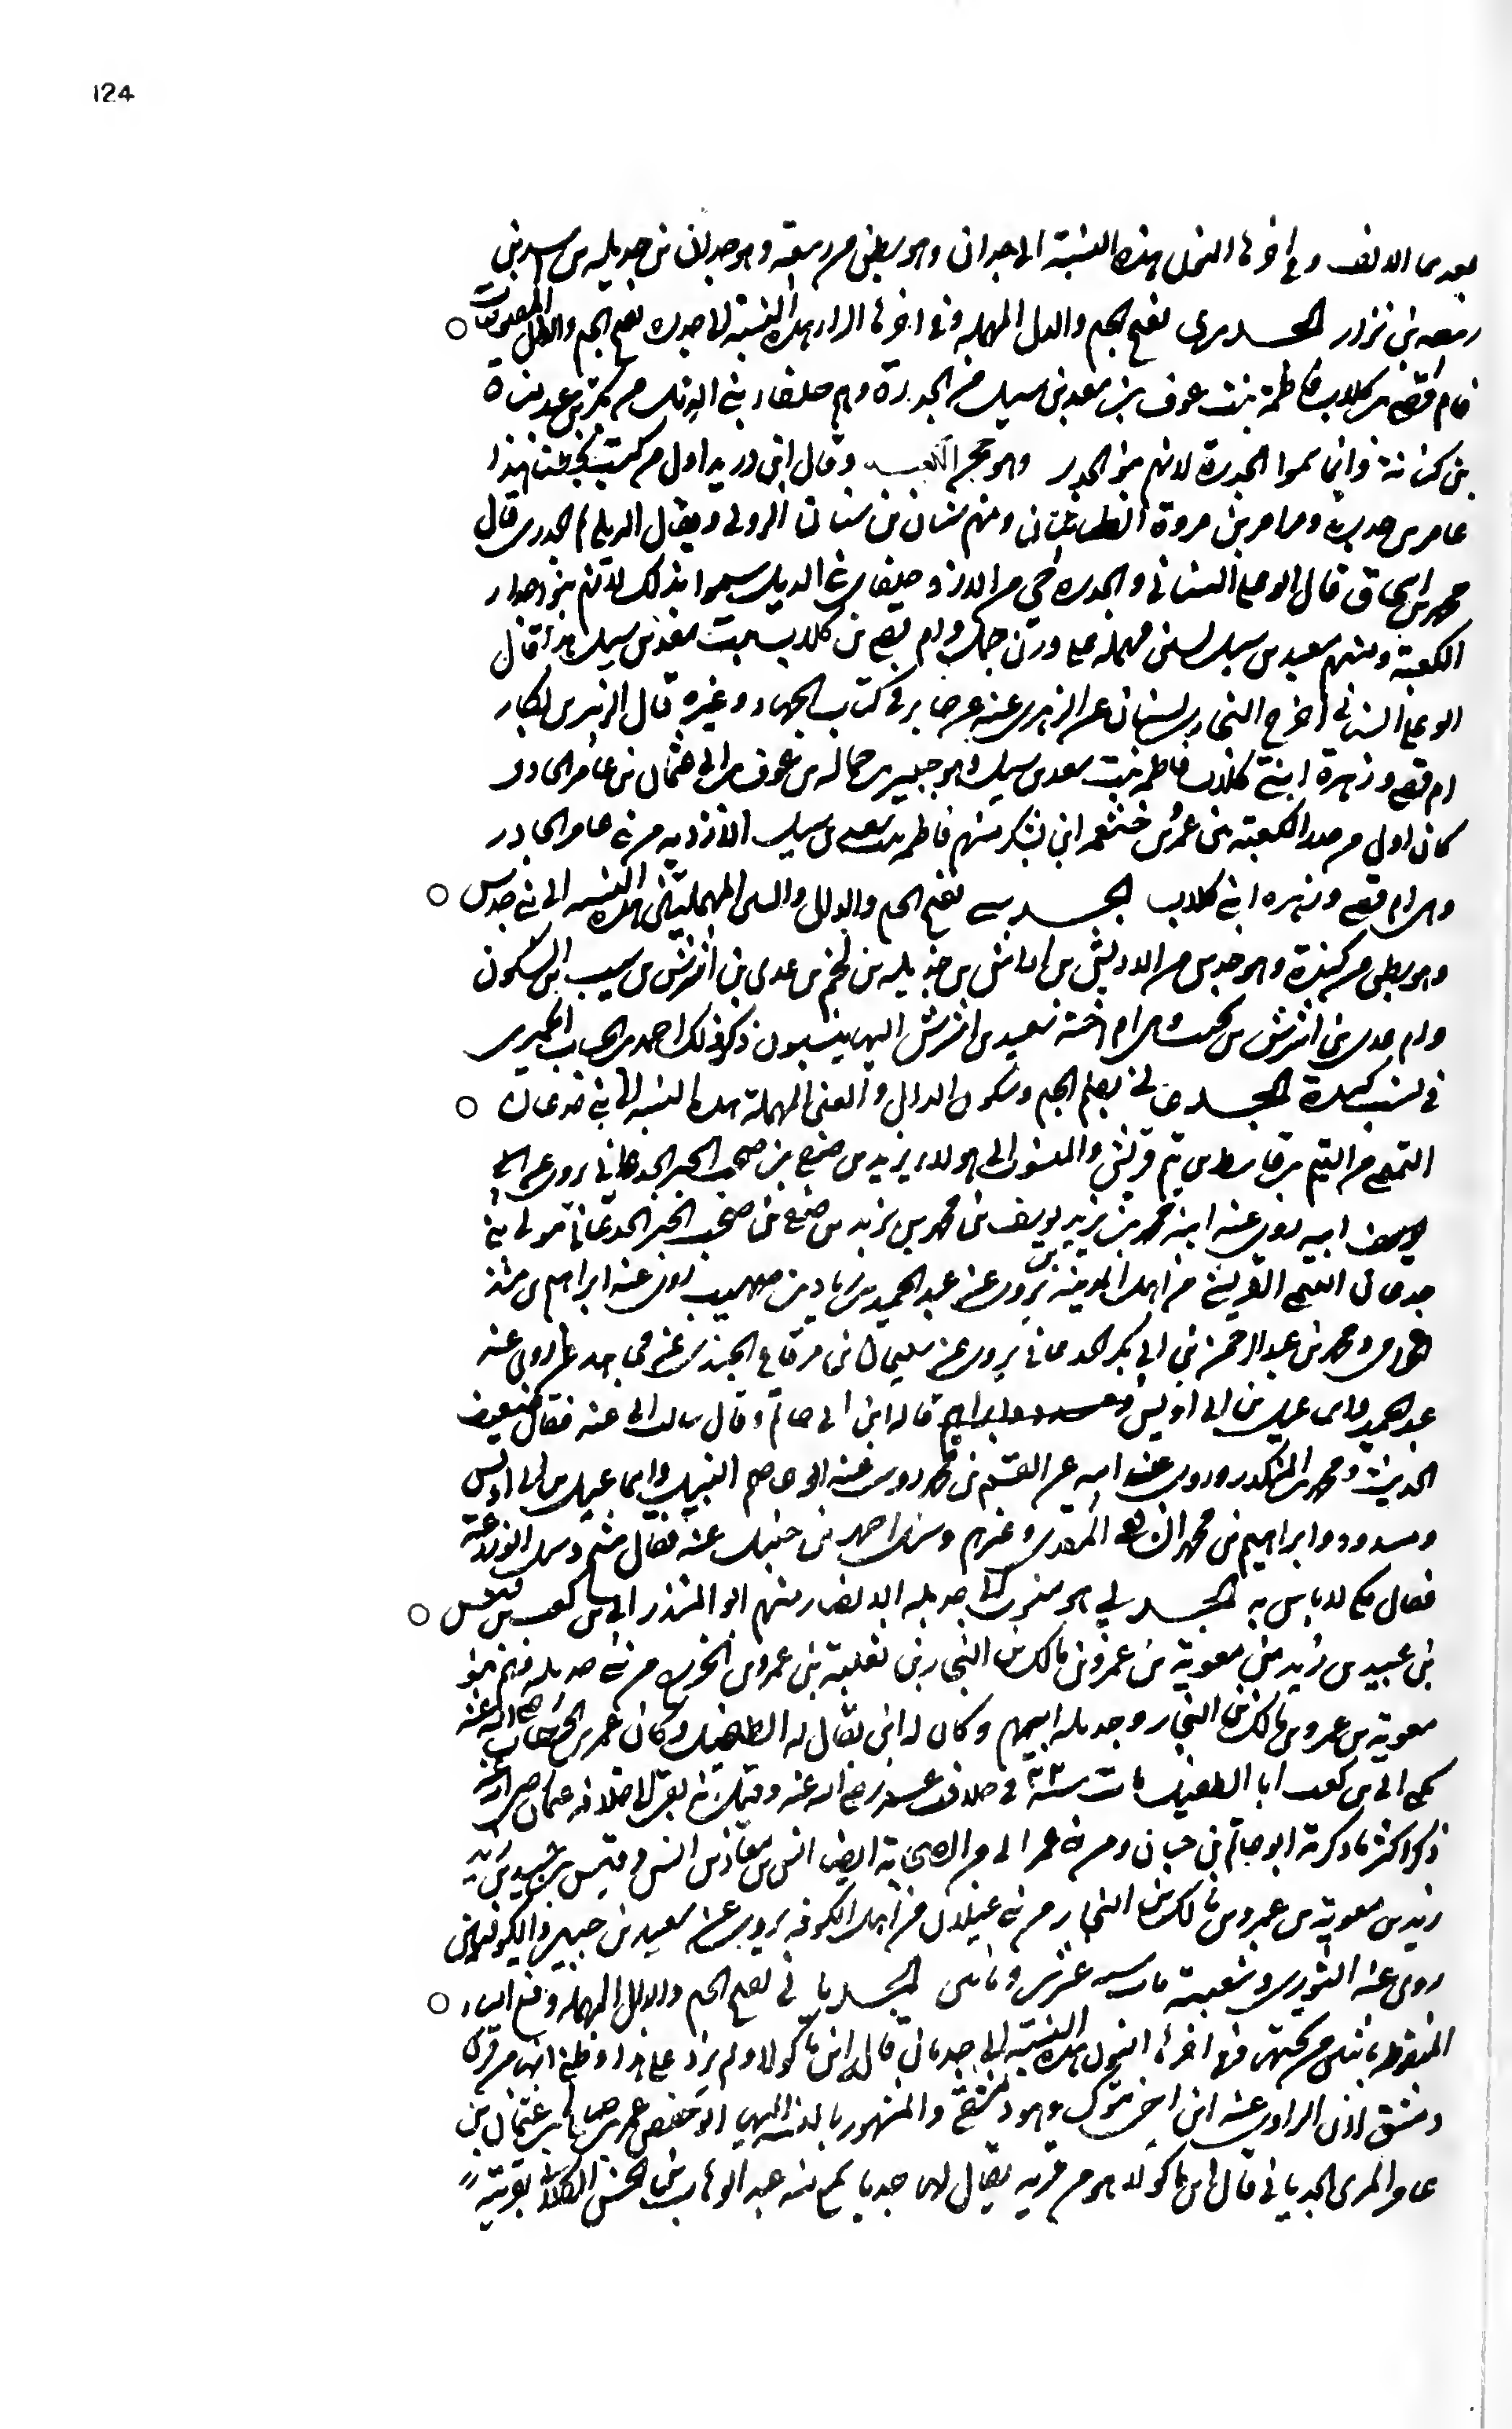 124
بعدها الالف وفي اخرها النون هذه النسبة الى جدان وهو بطن من ربيعة وهو جدان بن جديلة بن اسد بن
ربيعة بن نزار الجدري بفتح الجيم والدال المهملة وفي اخرها الراء هذه النسبة الى جدرة بفتح الجيم والدال
فام قصي بن كلاب فاطمة بنت عوف بن سعد بن سيل من الجدرة وهم حلفاء بني الديل من بكر بن عبد مناة
بن كنانة وانما سموا الجدرة لانهم بنوا الجدر وهو حجر الكعبة وقال ابن دريد اول من كتب بخطنا هذا
عامر بن جدرة ومرامر بن مروة الطائيان ومنهم سنان بن سنان الدولي ويقال الديلي الجدري قال
محمد بن اسحاق قال ابو علي الغساني والجدرة حي من الازد وحلفاء في الديل سموا بذلك لانهم بنوا جدار
الكعبة ومنهم سعد بن سيل بسين مهملة على وزن جمل وام قصي بن كلاب بنت سعد بن سيل هذا قال
ابو علي الغساني اخرج البخاري لسنان عن الزهري عنه عن جابر في كتاب الجهاد وغيره قال الزبير بن بكار
ام قصي وزهرة ابني كلاب فاطمة بنت سعد بن سيل وهو جبير بن حمالة بن عوف بن ابي عثمان بن عامر الجادر
كان اول من جدر الكعبة بن عمرو بن خثعمة ابن يشكر منهم فاطمة بنت سعد بن سيل الازدية من بني عامر الجادر
وهي ام قصي وزهرة ابني كلاب الجدسي بفتح الجيم والدال والسين المهملتين هذه النسبة الى بني جدس
وهو بطن من كندة وهو جدس بن اريش بن اراش بن جزيلة بن لخم بن عدي بن اشرس بن شبيب بن السكون
وام عدي بن اشرس بن تجيب وهي ام اخيه سعد بن اشرس اليها ينسبون ذكر ذلك احمد بن الحباب الحميري
في نسب كندة الجدعاني بضم الجيم وسكون الدال والعين المهملة هذه النسبة الى بني جدعان
التيمي من التيم بن قاسط بن تيم قريش والمنسوب الى هولاء يزيد بن صيفي بن صهيب الخير الجدعاني يروي عن ابيه
يوسف ابيه روى عنه ابنه محمد بن يزيد يوسف بن محمد بن يزيد بن صيفي بن صهيب الخير الجدعاني مولى بني
جدعان التيمي القرشي من اهل المدينة يروي عن عبد الحميد بن زياد بن صهيب روى عنه ابراهيم بن منذر
الحزامي ومحمد بن عبد الرحمن بن ابي بكر الجدعاني يروي عن سليمان بن مرقاع الجندي عن مجاهد روى عنه
عبد الحميد واسماعيل بن ابي اويس قاله ابن ابي حاتم وقال سالت ابي عنه فقال ضعيف
الحديث ومحمد بن المنكدر وروى عنه ابيه عن القسم بن محمد روى عنه ابو عاصم النبيل واسماعيل بن ابي اويس
ومسدد وابراهيم بن محمد الشافعي المقدمي وغيرهم وسئل احمد بن حنبل عنه فقال وسئل ابو زرعة
فقال مكي لا باس به الجدلي هو منسوب الى جديلة الانصار منهم ابو المنذر ابي بن كعب بن قيس
بن عبيد بن زيد بن معوية بن عمرو بن مالك بن النجار بن ثعلبة بن عمرو بن الخزرج من بني جديلة وهم بنو
معوية بن عمرو بن مالك بن النجار وجديلة امهم وكان له ابن يقال له الطفيل وكان عمر بن الخطاب رضي الله عنه
يكني ابي بن كعب ابا الطفيل مات سنة ٢٢ في خلافة عمر رضي الله عنه وقيل انه بقي الى خلافة عثمان رضي الله عنه
ذكر اكثر ما ذكرته ابو حاتم بن حبان ومن بني عم ابي من الصحابة ايضا انس بن معاذ بن انس وقيس بن عبيد بن زيد
زيد بن معوية بن عمرو بن مالك بن النجار من بني عيلان من اهل الكوفة يروي عن سعيد بن جبير والكوفيين
روى عنه الثوري وشعبة مات سنة عشرين ومائة الجدياني بفتح الجيم والدال المهملة وفتح الياء
المنقوطة باثنتين من تحتها وفي اخرها النون هذه النسبة الى جديان قال ابن ماكولا ولم يزد على هذا وظني انها من قرى
دمشق لان الراوي عنه ابن اخي تبوك وهو دمشقي والمشهور بالنسبة اليها ابو حفص عمر بن صالح بن عثمان بن
عامر المري الجدياني قال ابن ماكولا هو من قرية يقال لها جديا سمع منه عبد الوهاب بن الحسن الكلابي بقريته